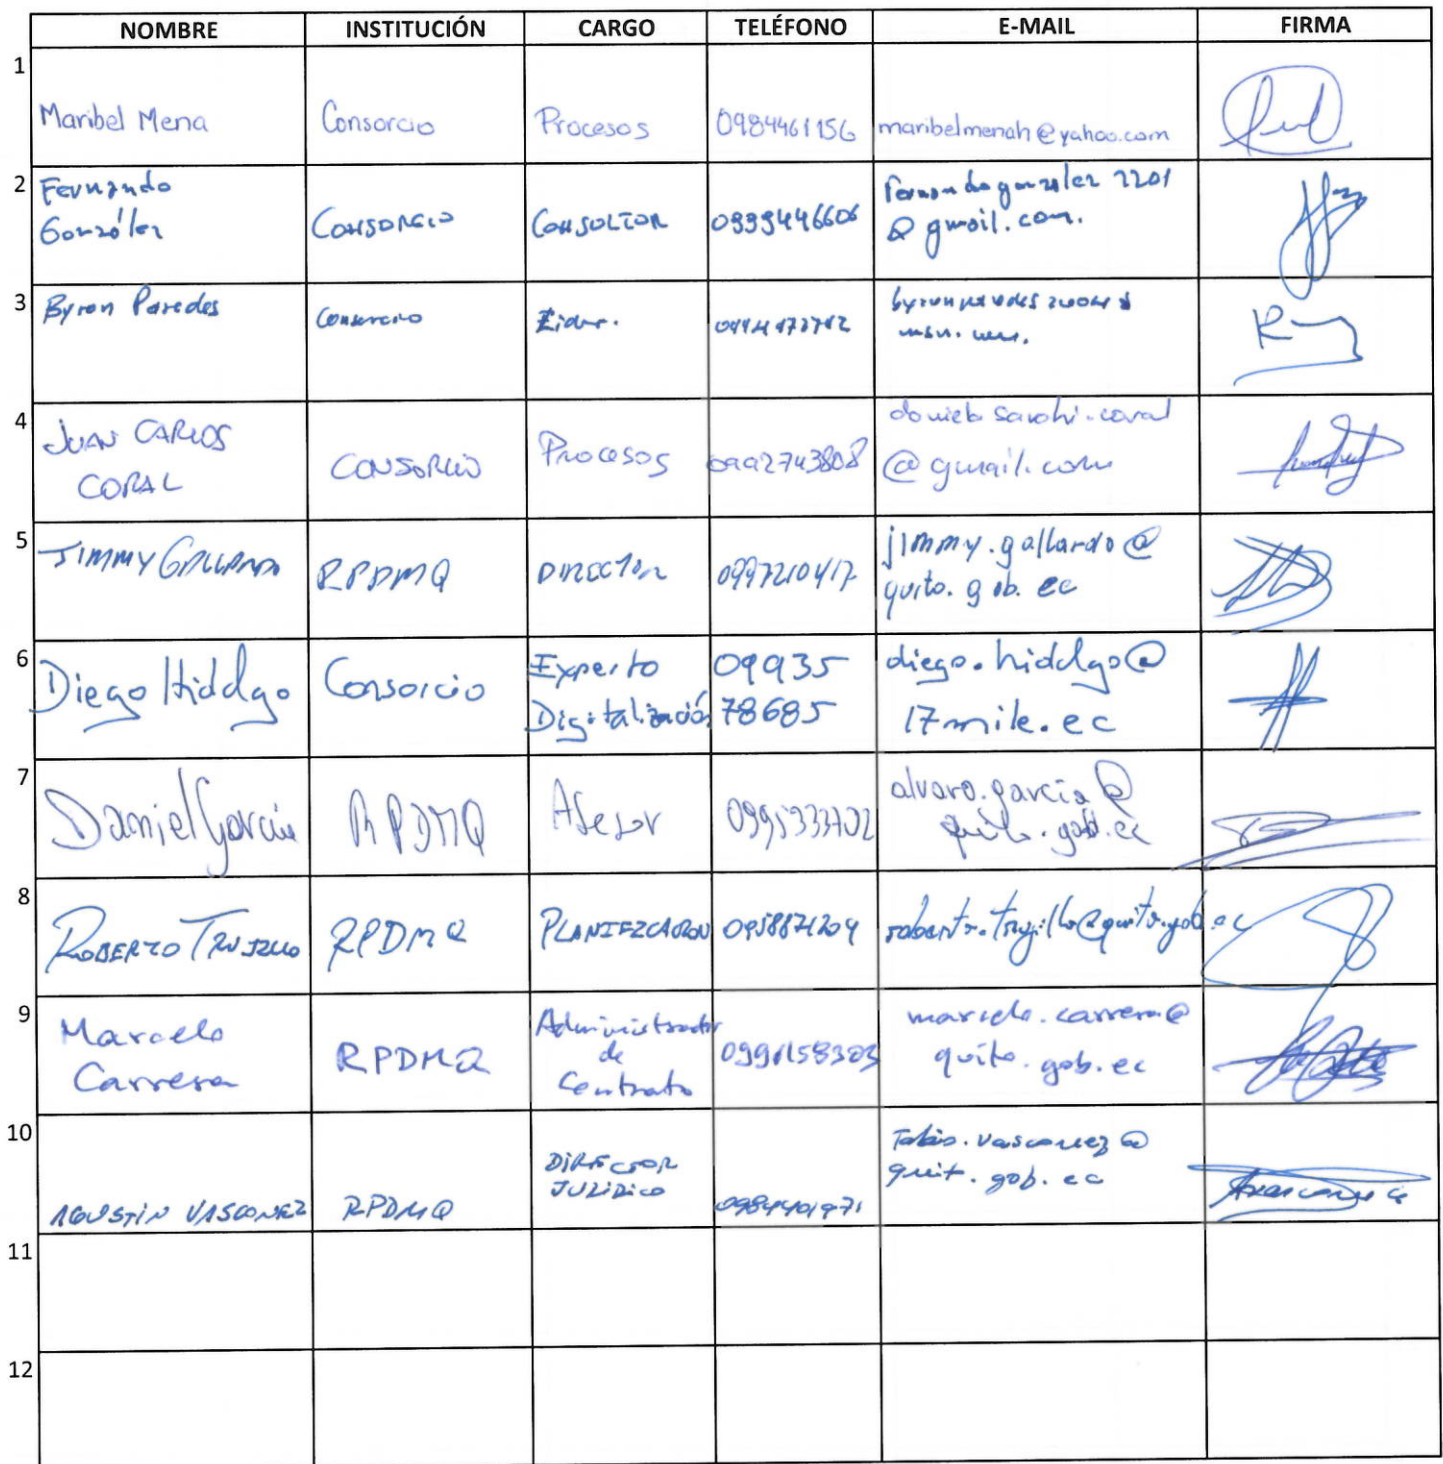 NOMBRE INSTITUCIÓN CARGO TELÉFONO E-MAIL FIRMA
1
Maribel Mena Consorcio Procesos 0984461156 maribelmenah@yahoo.com
2
Fernando
González
Consorcio Consultor 0999446606
fernandogonzalez2201
@gmail.com.
3
Byron Paredes Consorcio Líder.
4
JUAN CARLOS
CORAL
CONSORCIO Procesos 0992743808
daniela sarahi.coral
@gmail.com
5
JIMMY GALLARDO RPDMQ DIRECTOR 0997210417
jimmy.gallardo@
quito.gob.ec
6
Diego Hidalgo Consorcio
Experto
Digitalización
09935
78685
diego.hidalgo@
17mile.ec
7
Daniel García RPDMQ Asesor
alvaro.garcia@
quito.gob.ec
8
ROBERTO TRUJILLO RPDMQ PLANIFICACION 0958871204 roberto.trujillo@quito.gob.ec
9
Marcelo
Carrera
RPDMQ
Administrador
de
Contrato
marcelo.carrera@
quito.gob.ec
10
AGUSTÍN VASCONEZ RPDMQ
DIRECTOR
JURÍDICO
0984401971
vasconez@
quito.gob.ec
11
12